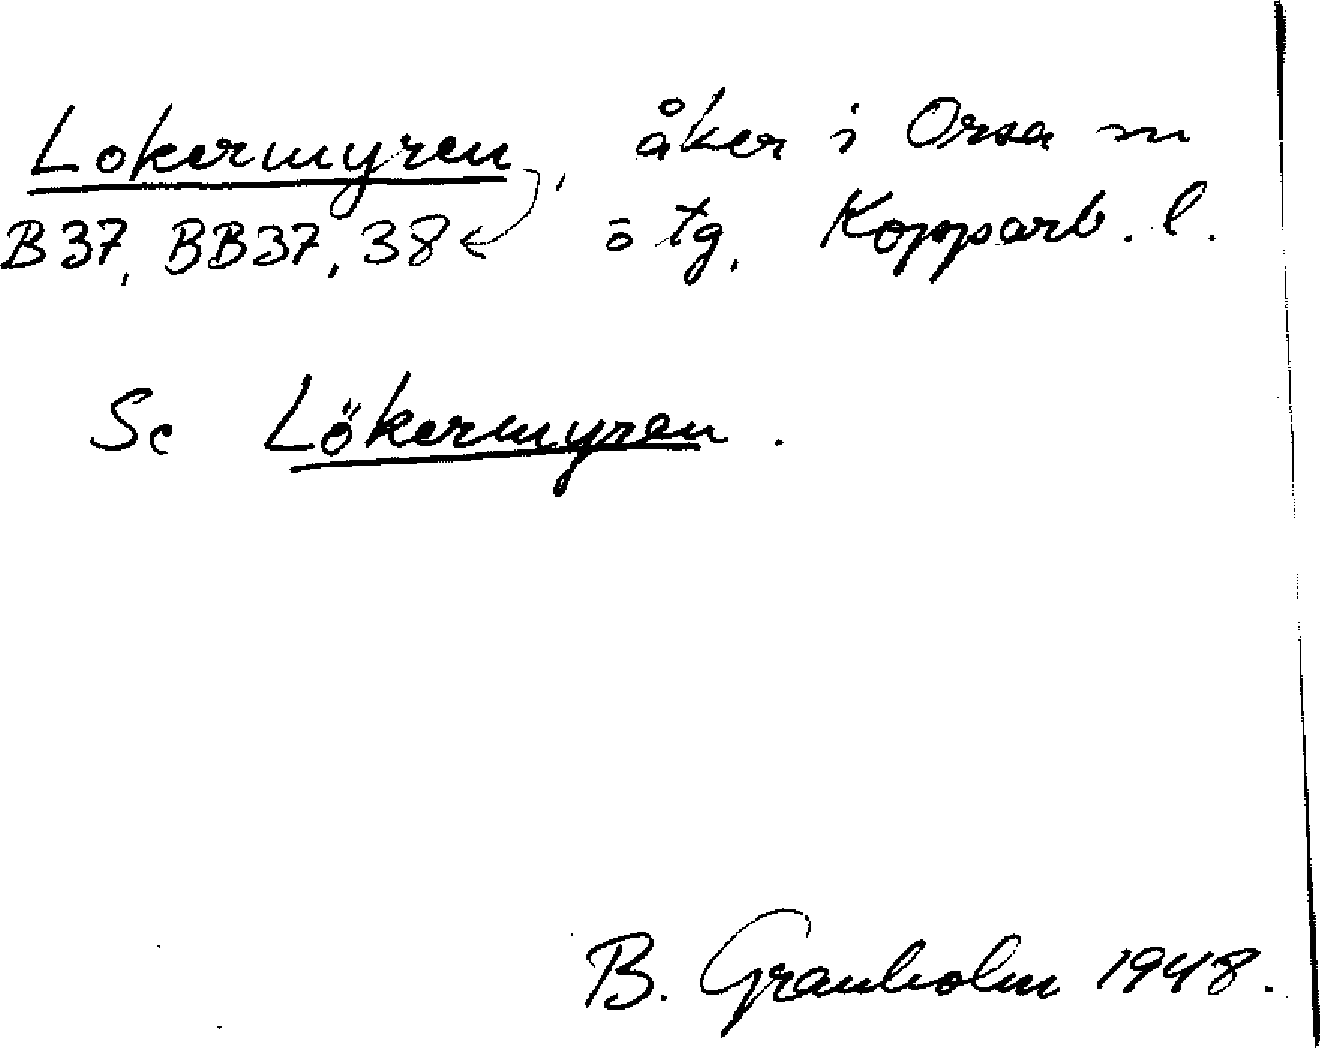 Lokermyren, åker i Orsa sn
B37, BB37, 38 ö tg, Kopparb. l.
Se Lökermyren.
B. Granholm 1948.